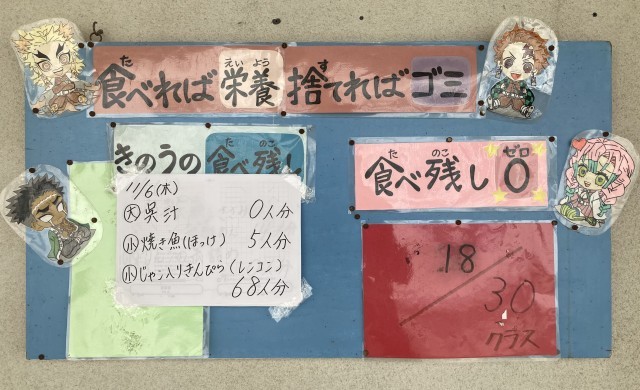 食べれば栄養 捨てればゴミ
きのうの 食べ残し
食べ残し0
11/6(木)
大 呉汁 0人分
小 焼き魚(ほっけ) 5人分
小 じゃこ入りきんぴら(レンコン)
68人分
18/30
クラス